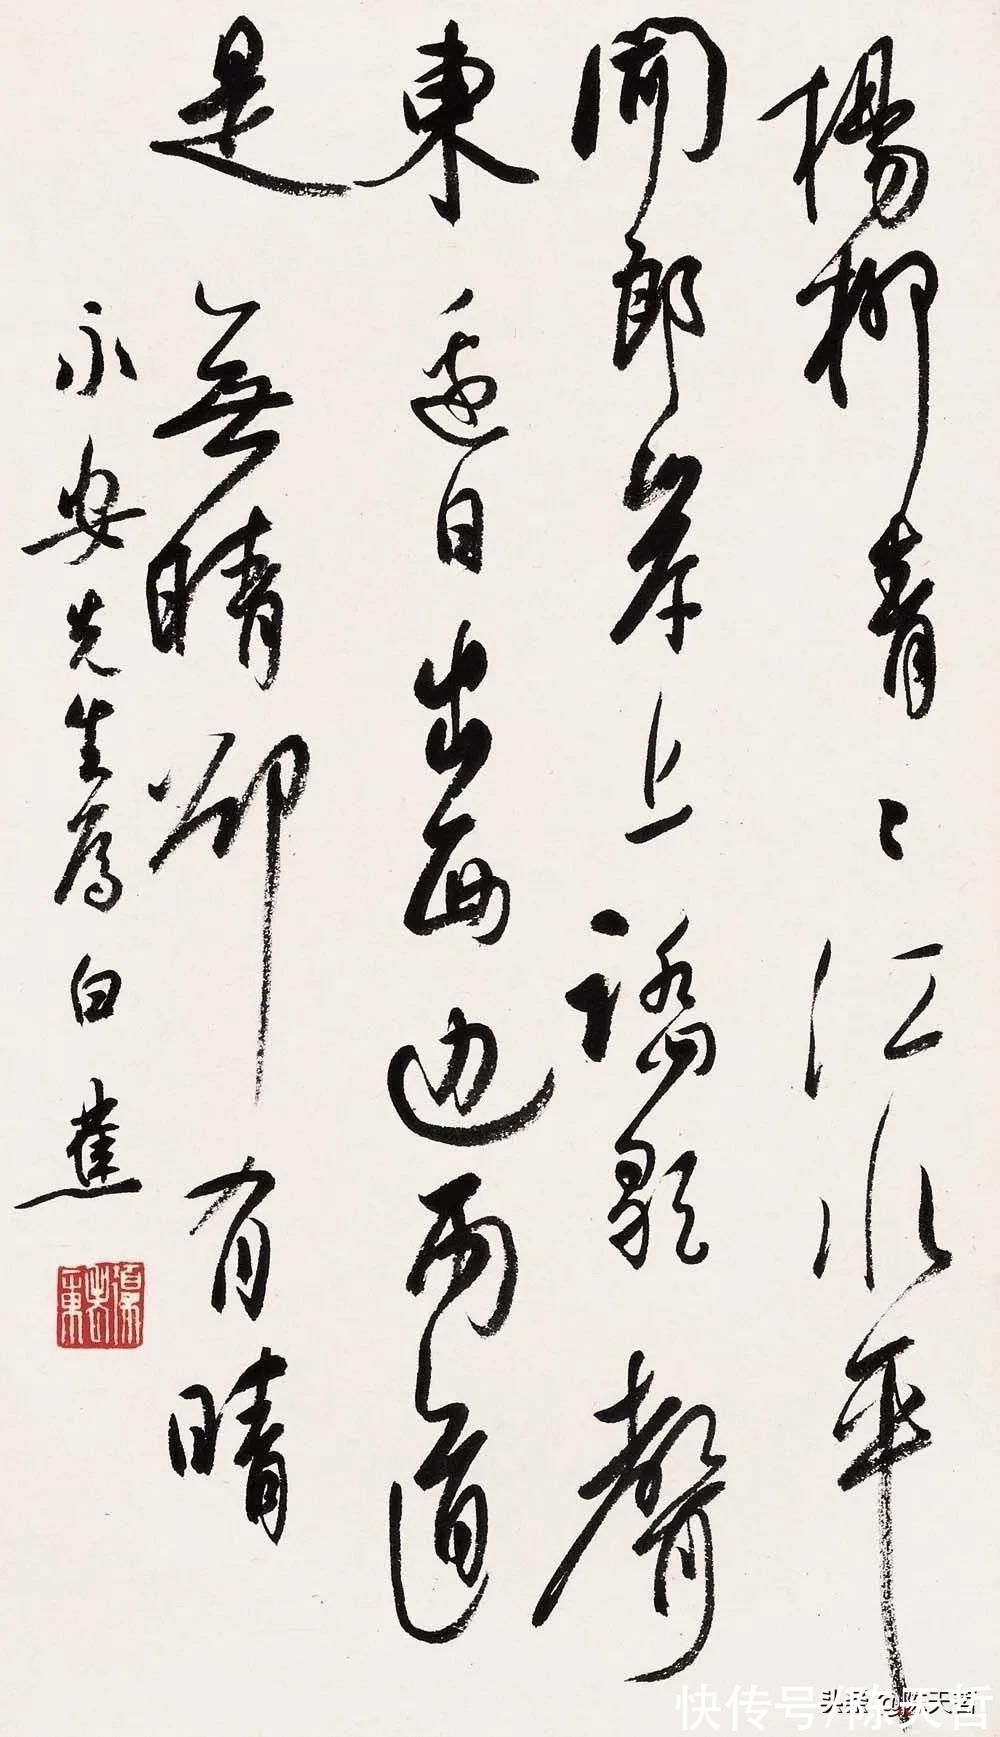 楊柳青〻江水平
聞郎岸上踏歌聲
東邊日出西边雨道
是無晴卻有晴
永安先生属 白蕉
头条 @陈天哲
快传号/陈天哲